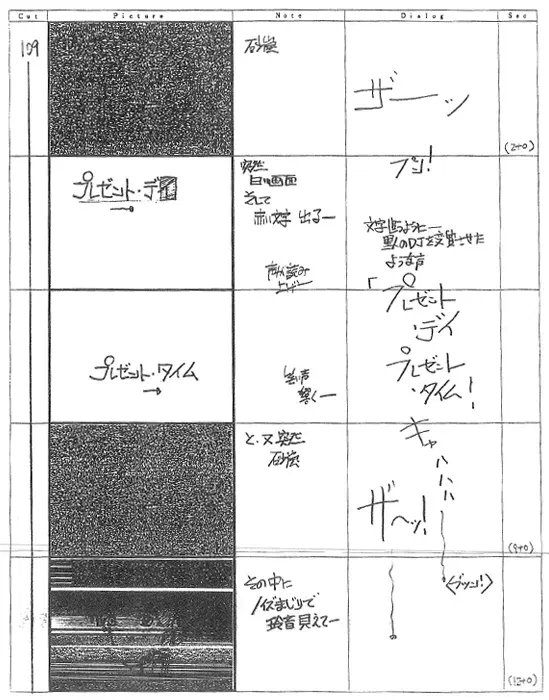 Cut Picture Note Dialog Sec
109
砂嵐
ザーーッ
(2+0)
プレゼント・デイ
突然
白い画面
そして
赤い文字 出るー
プン!
黒人のDJを
ような声
「プレゼント
・デイ
プレゼント・タイム
笑い声
響くー
プレゼント
・タイム!
と、又突然
砂嵐
キャ
ハ
ハ
ハ
ザ〜ッ!
(9+0)
その中に
ノイズまじりで
見えてー
<ブツン!>
(12+0)